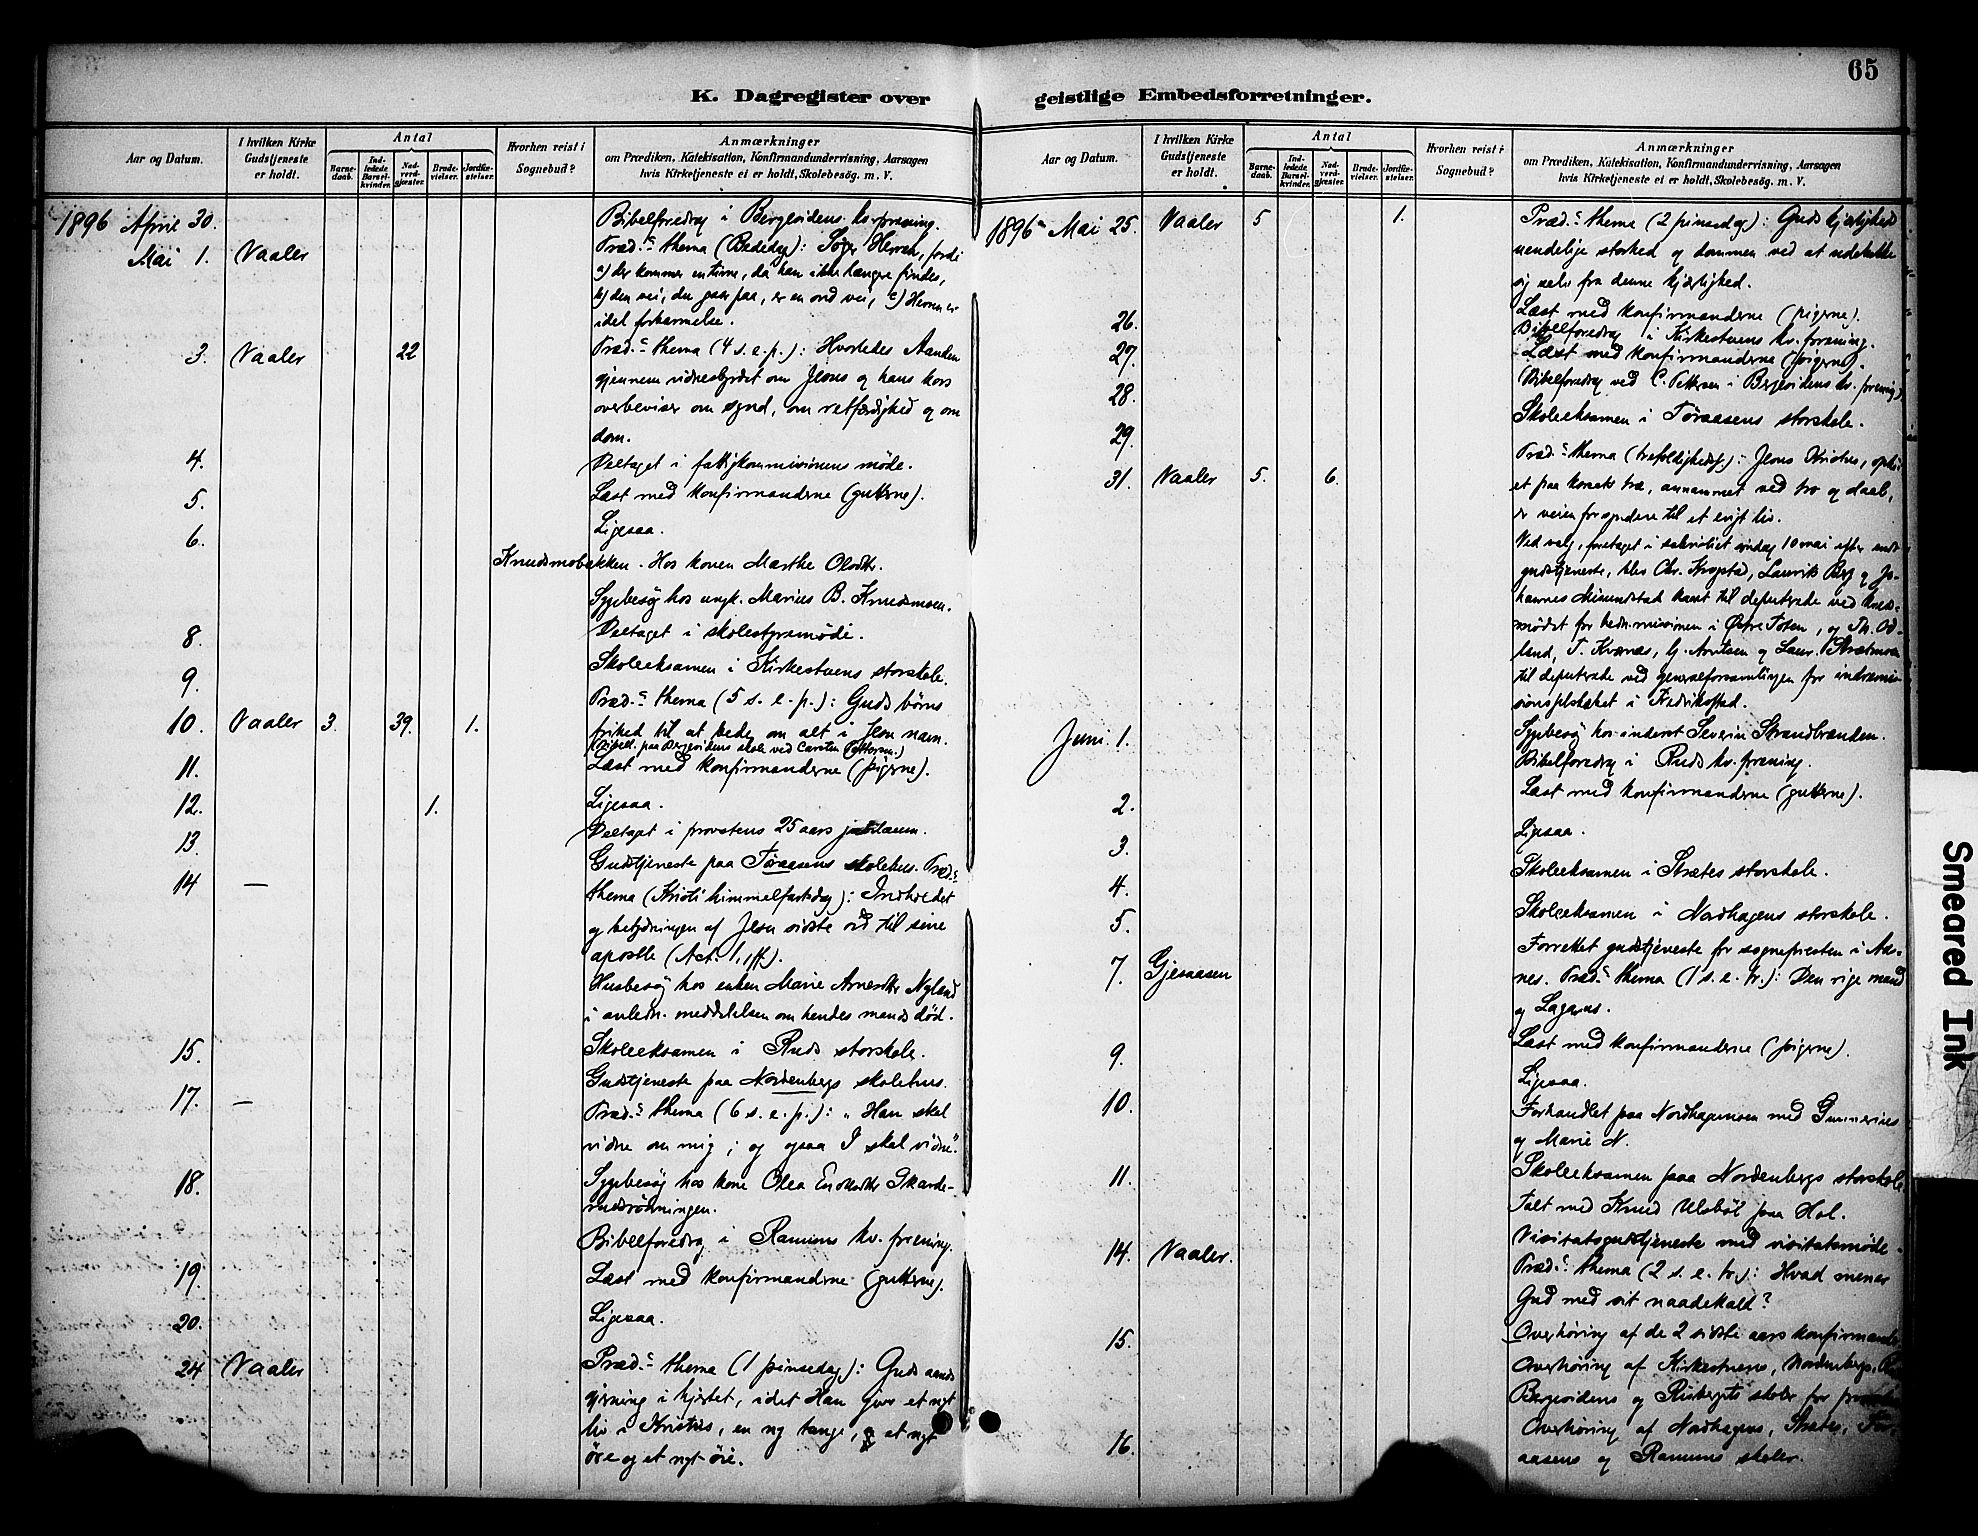 65
K. Dagregister over geistlige Embedsforretninger.
Aar og Datum.
I hvilken Kirke Gudstjeneste er holdt.
Antal
Barnedaab.
Indledede Barselkvinder.
Nadverdgjæster.
Brudevielser.
Jordfæstelser.
Hvorhen reist i Sognebud?
Anmærkninger
om Prædiken, Katekisation, Konfirmandundervisning, Aarsagen
hvis Kirketjeneste ei er holdt, Skolebesøg. m. V.
1896 April 30. Bibelforedrag i Bergevidens kv. forening.
Mai 1. Vaaler Præd.s thema (Bededag): Søger Herren, fordi
a) der kommer en time, da han ikke længre findes,
b) den vei, du gaar paa, er en ond vei, c) Herren er
idel forbarmelse.
3. Vaaler 22 Præd.s thema (4 s. e. p.): Hvorledes Aanden
gjennem vidnesbyrdet om Jesus og hans kors
overbeviser om synd, om retfærdighed og om
dom.
4. Deltaget i fattigkommissionens møde.
5. Læst med konfirmanderne (gutterne).
6. Ligesaa.
Knudsmobakken. Hos konen Marthe Olsdtr.
Sygebesøg hos ungk. Marius B. Knudsmoen.
8. Deltaget i skolestyremøde.
9. Skoleeksamen i Kirkestuens storskole.
10. Vaaler 3. 39. 1. Præd.s thema (5 s. e. p.): Guds børns
frihed til at bede om alt i Jesu navn.
(Bibell. paa Bergevidens skole ved Carsten Pettersen.)
11. Læst med konfirmanderne (pigerne).
12. 1. Ligesaa.
13. Deltaget i provstens 25 aars jubilæum.
14 — Gudstjeneste paa Foraasens skolehus. Præd.s
thema (Kristi himmelfartsdag): Indholdet
og betydningen af Jesu sidste ord til sine
apostle (Act. 1, 1ff.).
Husbesøg hos enken Marie Arnesdtr Nyland
i anledn. meddelelsen om hendes mands død.
15. Skoleeksamen i Ruds storskole.
17. — Gudstjeneste paa Nordenbergs skolehus.
Præd.s thema (6 s. e. p.): „Han skal
vidne om mig; og ogsaa I skal vidne".
18. Sygebesøg hos kone Olea
rudrødningen.
Bibelforedrag i Ramsens kv. forening.
19. Læst med konfirmanderne (gutterne).
20. Ligesaa.
24 Vaaler Præd.s thema (1 pinsedag): Guds aands
gjerning i hjertet, idet Han giver et nyt
liv i Kristus, en ny tunge, og et nyt
øre og et nyt øie.
Aar og Datum.
I hvilken Kirke Gudstjeneste er holdt.
Antal
Barnedaab.
Indledede Barselkvinder.
Nadverdgjæster.
Brudevielser.
Jordfæstelser.
Hvorhen reist i Sognebud?
Anmærkninger
om Prædiken, Katekisation, Konfirmandundervisning, Aarsagen
hvis Kirketjeneste ei er holdt, Skolebesøg. m. V.
1896 Mai 25. Vaaler 5 1. Præd.s thema (2 pinsedag): Guds kjærlighed
uendelige storhed og dommen ved at udelukke
sig selv fra denne kjærlighed.
26. Læst med konfirmanderne (pigerne).
Bibelforedrag i Kirkestuens kv. forening.
27. Læst med konfirmanderne (pigerne).
28. (Bibelforedrag ved C. Pettersen i Bergevidens kv. forening)
29. Skoleeksamen i Foraasens storskole.
31. Vaaler 5. 6. Præd.s thema (trefoldighedsf.): Jesus Kristus, ophøi-
et paa korsets træ, annammet ved tro og daab,
er veien for syndere til et evigt liv.
Ved valg, foretaget i sakristiet søndag 10 mai efter endt
gudstjeneste, blev Chr. Krogstad, Laurits Berg og Jo-
hannes Misundstad kaaret til deputerede ved kreds-
mødet for hedn.missionen i Østre Toten, og Th. Od-
land, T. Kværnæs, G. Arntsen og Laur. Strætmoen
til deputerede ved generalforsamlingen for indremis-
sionsselskabet i Fredrikstad.
Juni 1. Sygebesøg hos inderst Severin Strandbrænden.
Bibelforedrag i Ruds kv. forening.
2. Læst med konfirmanderne (gutterne).
3. Ligesaa.
4. Skoleeksamen i Strætes storskole.
5. Skoleeksamen i Nordhagens storskole.
7. Gjesaasen Forrettet gudstjeneste for sognepresten i Aas-
nes. Præd.s thema (1 s. e. tr.): Den rige mand
og Lazarus.
9. Læst med konfirmanderne (pigerne).
10. Ligesaa.
Forhandlet paa Nordhagmoen med Gunnerius
og Marie N.
11. Skoleeksamen paa Nordenbergs storskole
Talt med Knud Ulsbøl paa Hol.
14. Vaaler. Visitatsgudstjeneste med visitatsmøde.
Præd.s thema (2 s. e. tr.): Hvad mener
Gud med sit naadekald?
15. Overhøring af de 2 sidste aars konfirmander
Overhøring af Kirkestuens, Nordenbergs,
Bergevidens og Risbergets skoler for
16. Overhøring af Nordhagens, Strætes, For-
aasens og Ramsens skoler.
Smeared Ink